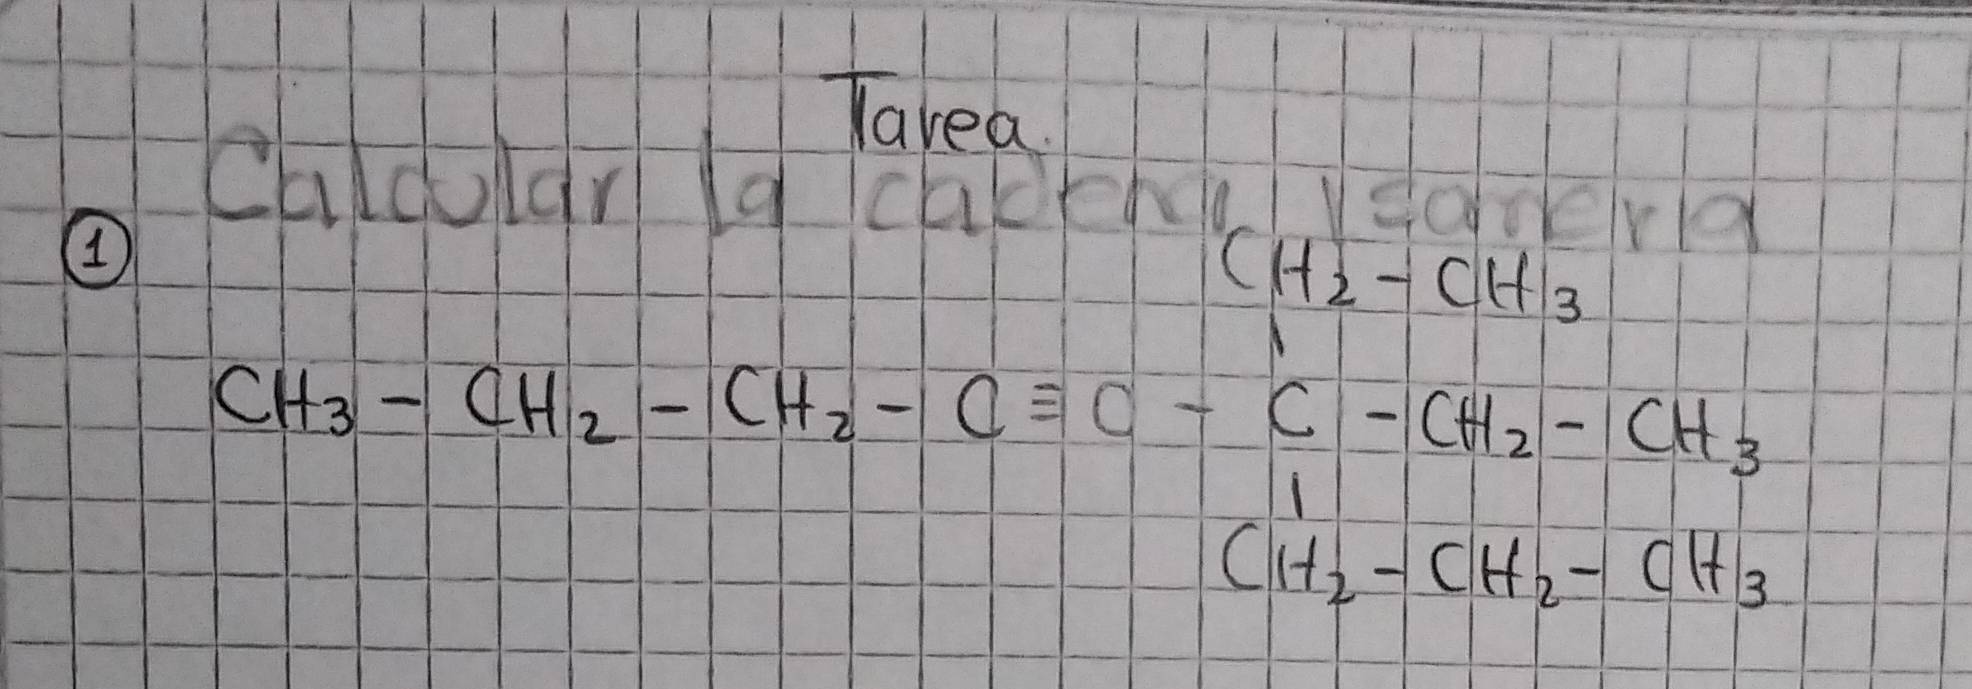 Tarea.
Calcular la cadena
①
CH₂-CH₃
CH₃-CH₂-CH₂-C≡C-C-CH₂-CH₃
CH₂-CH₂-CH₃